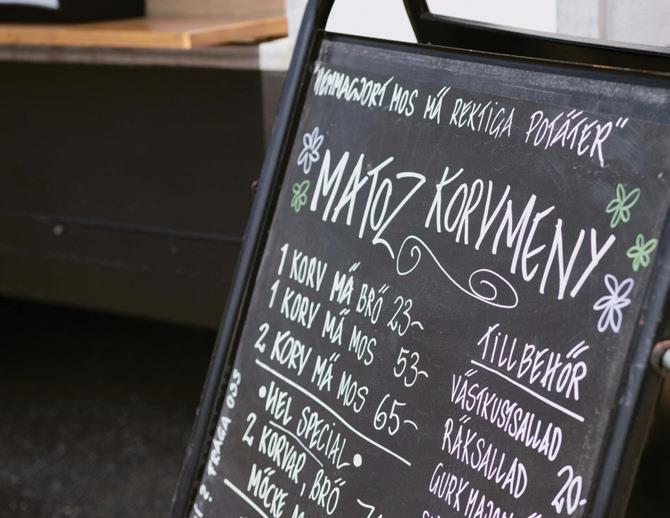 "HEMMAGJORT MOS MÄ REKTIGA POTÄTER"
MATOZ KORVMENY
1 KORV MÄ BRÖ 23~
1 KORV MÄ MOS 53~
2 KORV MÄ MOS 65~
•HEL SPECIAL•
2 KORVAR, BRÖ
MÖCKE
TILLBEHÖR
VÄSTKUSTSALLAD
RÄKSALLAD 20-
FRÅGA OSS